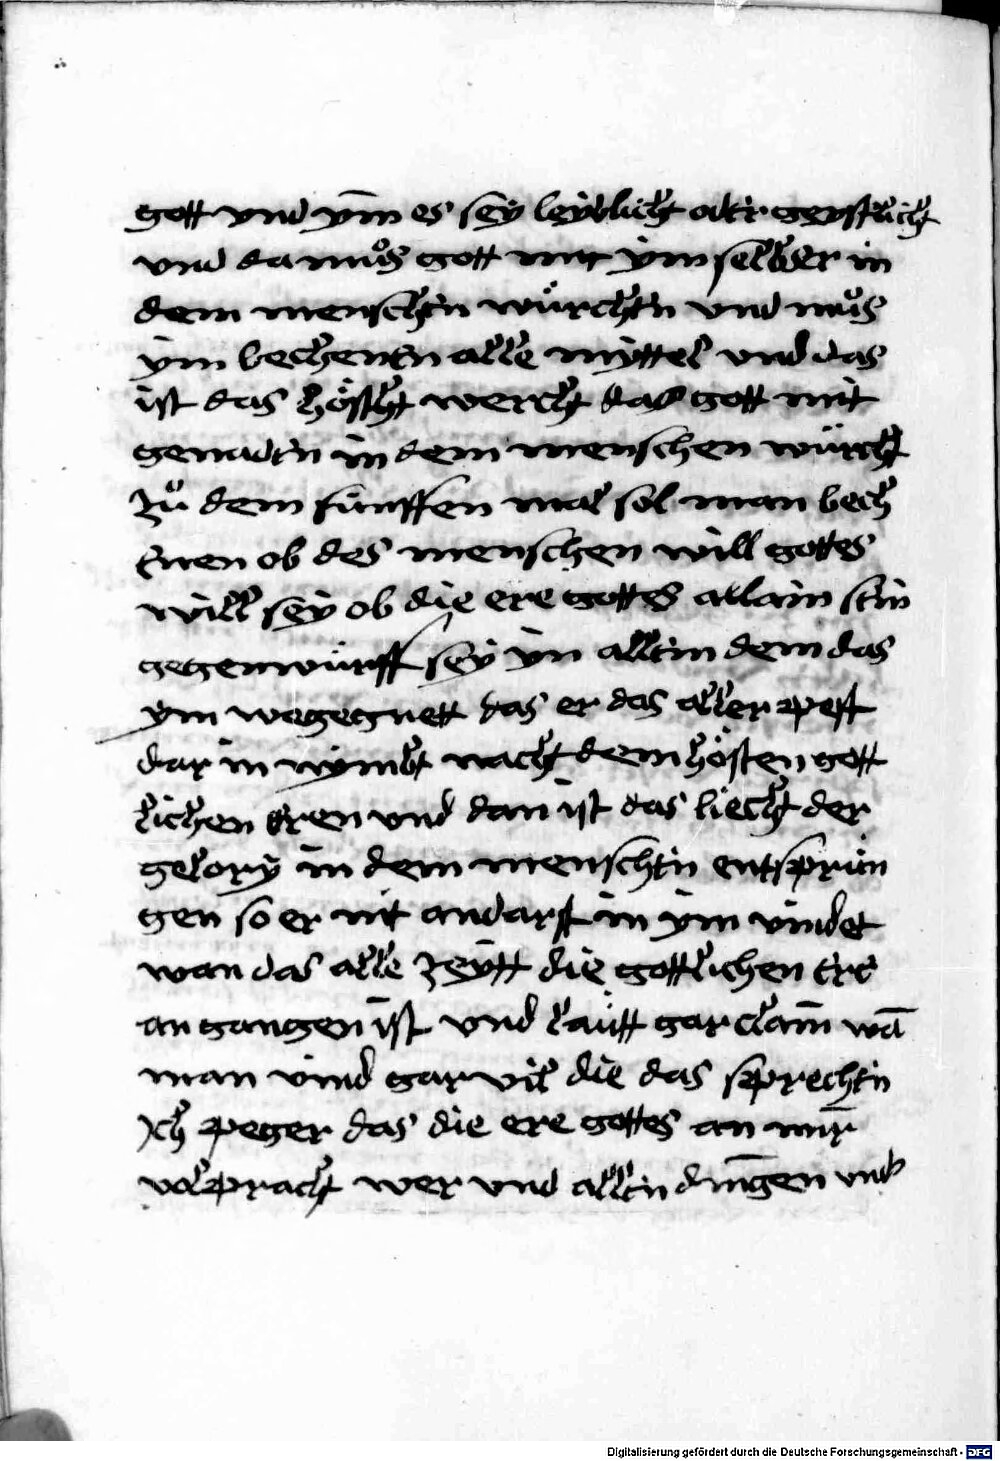 gott vnd ym es sey leyblich oder geystlich
vnd da muͦs gott mit ym selber in
dem menschen würchen vnd muͦs
ym bechenen alle myttel vnd das
ist das höscht werch das gott mit
genaden in dem menschen würcht
Zuͦ dem funfften mal sol man bech
enen ob des menschen will gottes
will sey ob die ere gottes allain sein
gegenwürff sey yn allem dem das
ym wegegnett das er das aller pest
dar in nymbt nach dem hösten gott
lichen eren vnd dan ist das liecht der
gelory in dem menschen entsprün
gen so er nit andarst in ym vindet
wan das alle zeytt die gottlichen ere
an gangen ist vnd lautt gar clain wā
man vind gar vil die das sprechen
Ich peger das die ere gottes an mir
volpracht wer vnd allen dingen vnd
Digitalisierung gefördert durch die Deutsche Forschungsgemeinschaft - DFG